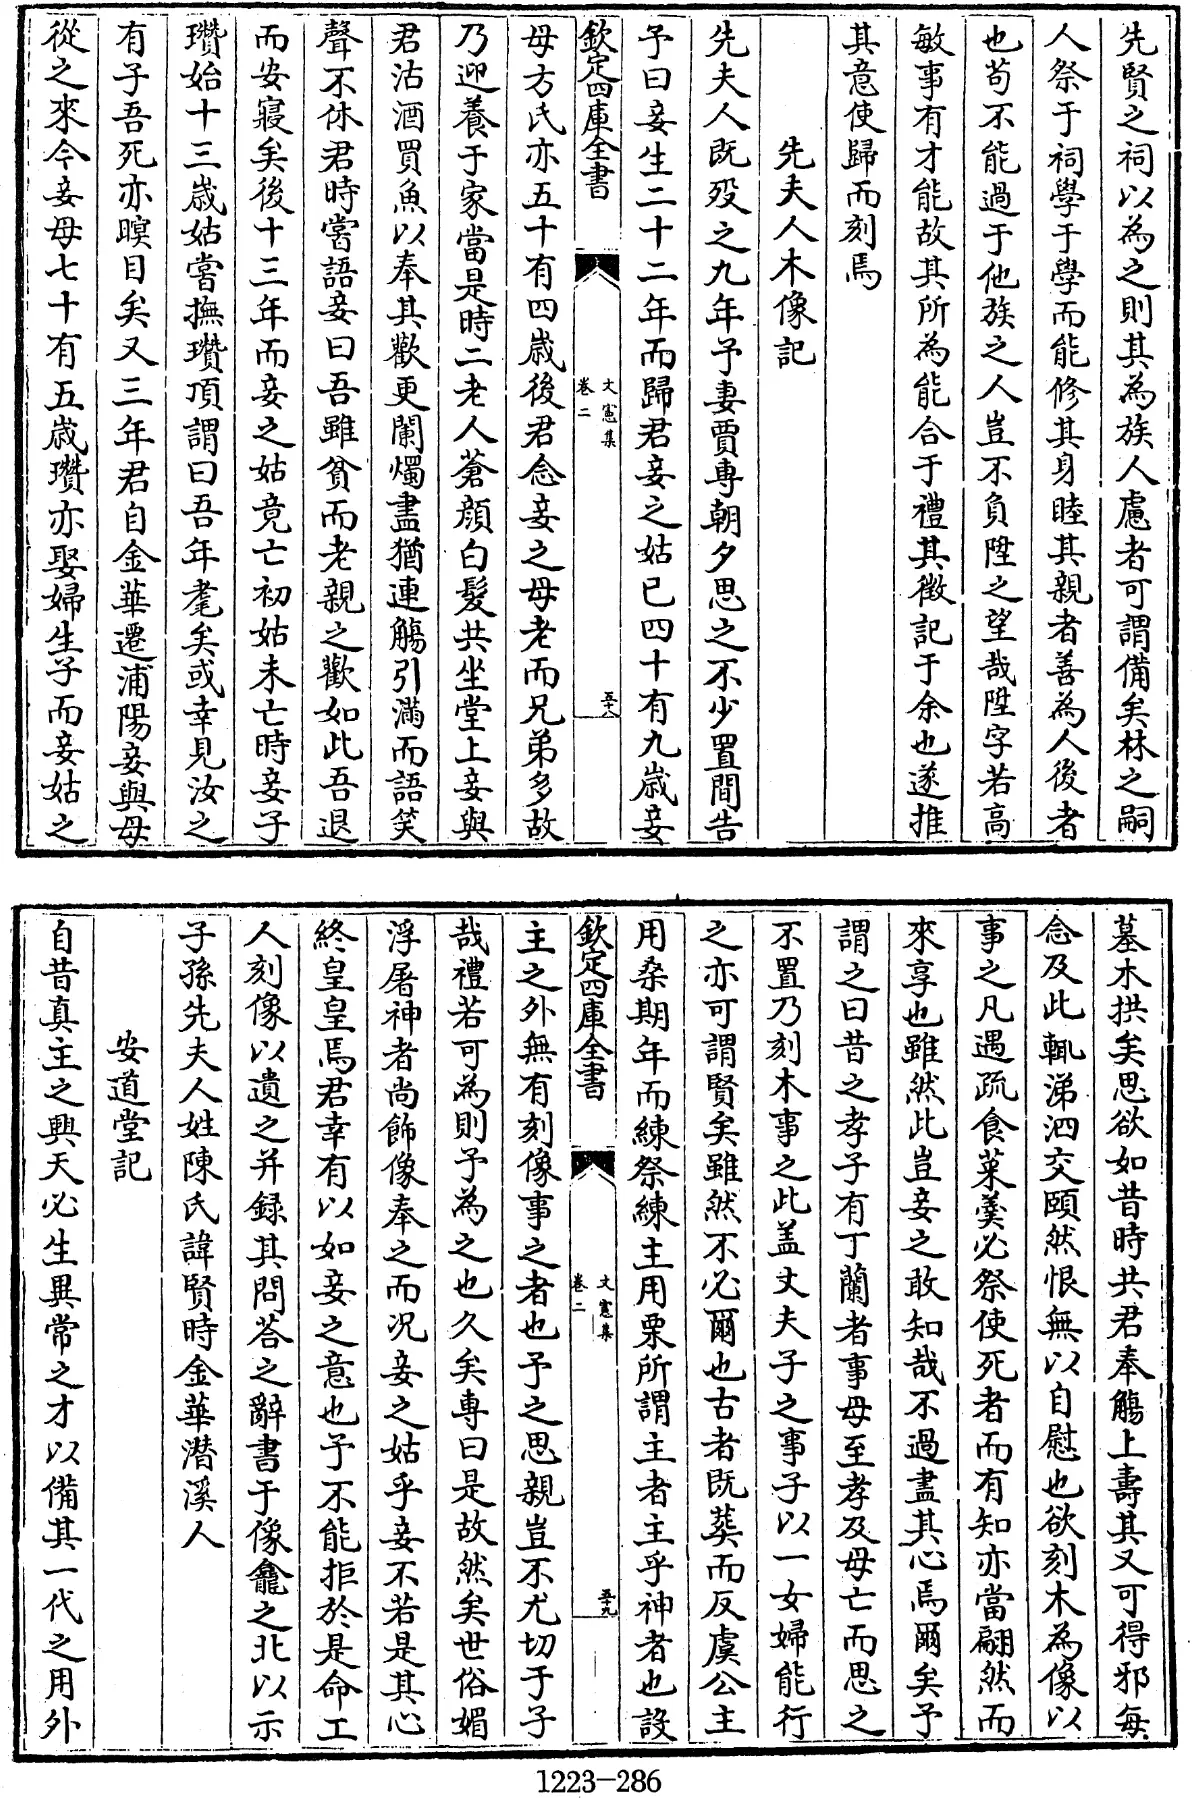 先賢之祠以為之則其為族人慮者可謂備矣林之嗣
人祭于祠學于學而能修其身睦其親者善為人後者
也苟不能過于他族之人豈不負陞之望哉陞字若高
敏事有才能故其所為能合于禮其徵記于余也遂推
其意使歸而刻焉
先夫人木像記
先夫人既歿之九年予妻賈専朝夕思之不少置間告
予曰妾生二十二年而歸君妾之姑已四十有九歳妾
欽定四庫全書
文憲集
卷二
五十八
母方氏亦五十有四歳後君念妾之母老而兄弟多故
乃迎養于家當是時二老人蒼顔白髪共坐堂上妾與
君沽酒買魚以奉其歡更闌燭盡猶連觴引滿而語笑
聲不休君時嘗語妾曰吾雖貧而老親之歡如此吾退
而安寢矣後十三年而妾之姑竟亡初姑未亡時妾子
瓚始十三歳姑嘗撫瓚項謂曰吾年耄矣或幸見汝之
有子吾死亦瞑目矣又三年君自金華遷浦陽妾與母
從之來今妾母七十有五歳瓚亦娶婦生子而妾姑之
墓木拱矣思欲如昔時共君奉觴上壽其又可得邪每
念及此輒涕泗交頤然恨無以自慰也欲刻木為像以
事之凡遇疏食菜羮必祭使死者而有知亦當翩然而
來享也雖然此豈妾之敢知哉不過盡其心焉爾矣予
謂之曰昔之孝子有丁蘭者事母至孝及母亡而思之
不置乃刻木事之此盖丈夫子之事子以一女婦能行
之亦可謂賢矣雖然不必爾也古者既葬而反虞公主
用桑期年而練祭練主用栗所謂主者主乎神者也設
欽定四庫全書
文憲集
卷二
五十九
主之外無有刻像事之者也予之思親豈不尤切于子
哉禮若可為則予為之也久矣専曰是故然矣世俗媚
浮屠神者尚飾像奉之而况妾之姑乎妾不若是其心
終皇皇焉君幸有以如妾之意也予不能拒於是命工
人刻像以遺之并録其問答之辭書于像龕之北以示
子孫先夫人姓陳氏諱賢時金華潛溪人
安道堂記
自昔真主之興天必生異常之才以備其一代之用外
1223-286